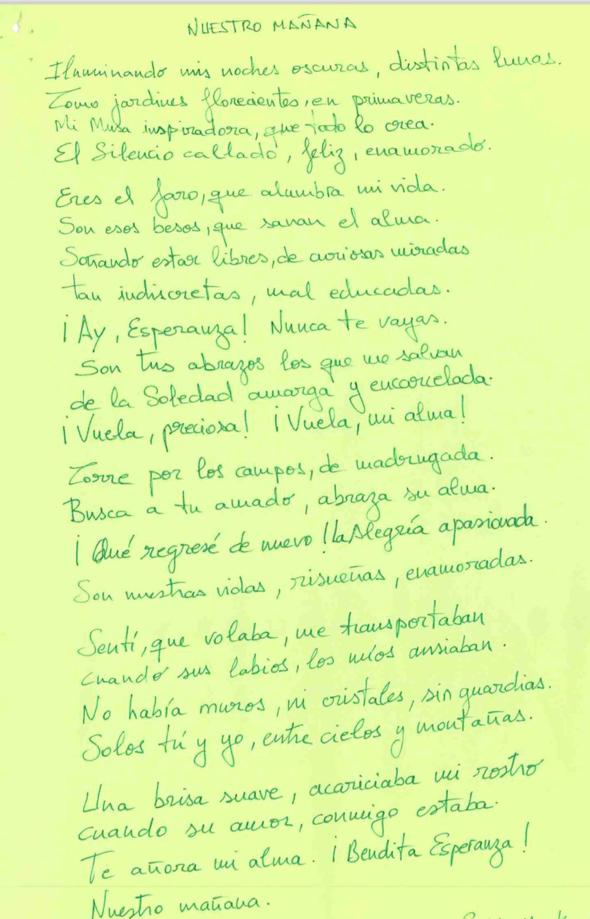 NUESTRO MAÑANA
Iluminando mis noches oscuras, distintas lunas.
Como jardines florecientes, en primaveras.
Mi Musa inspiradora, que todo lo crea.
El Silencio callado, feliz, enamorado.
Eres el faro, que alumbra mi vida.
Son esos besos, que sanan el alma.
Soñando estar libres, de curiosas miradas
tan indiscretas, mal educadas.
¡Ay, Esperanza! Nunca te vayas.
Son tus abrazos los que me salvan
de la Soledad amarga y encarcelada.
¡Vuela, preciosa! ¡Vuela, mi alma!
Corre por los campos, de madrugada.
Busca a tu amado, abraza su alma.
¡Qué regresé de nuevo! la Alegría apasionada.
Son nuestras vidas, risueñas, enamoradas.
Sentí, que volaba, me transportaban
cuando sus labios, los míos ansiaban.
No había muros, ni cristales, sin guardias.
Solos tú y yo, entre cielos y montañas.
Una brisa suave, acariciaba mi rostro
cuando su amor, conmigo estaba.
Te añora mi alma. ¡Bendita Esperanza!
Nuestro mañana.